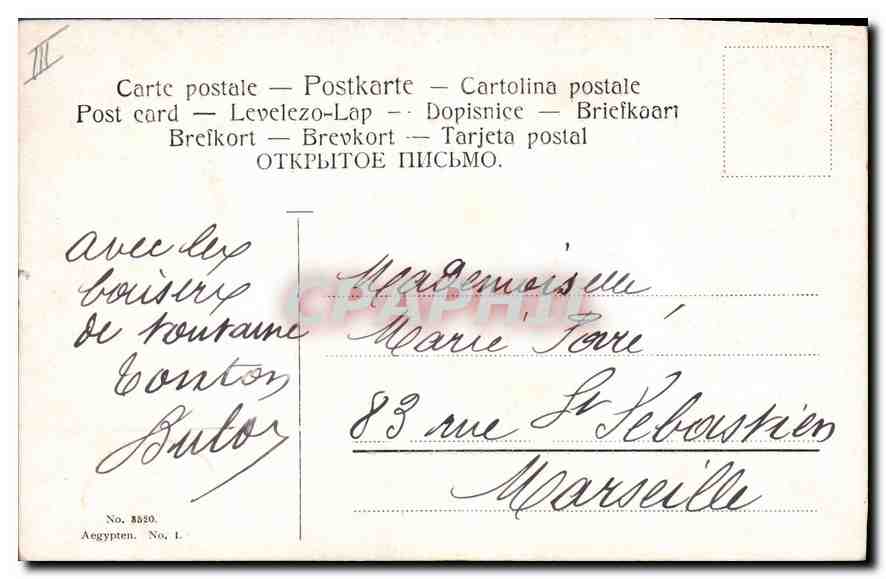 III
Carte postale — Postkarte — Cartolina postale
Post card — Levelezo-Lap — Dopisnice — Briefkaart
Brefkort — Brevkort — Tarjeta postal
ОТКРЫТОЕ ПИСЬМО.
avec les
baisers
de
tonton
Mademoiselle
Marie
83 rue St Sebastien
Marseille
CPAPHIL
No. 3520.
Aegypten. No. 1.